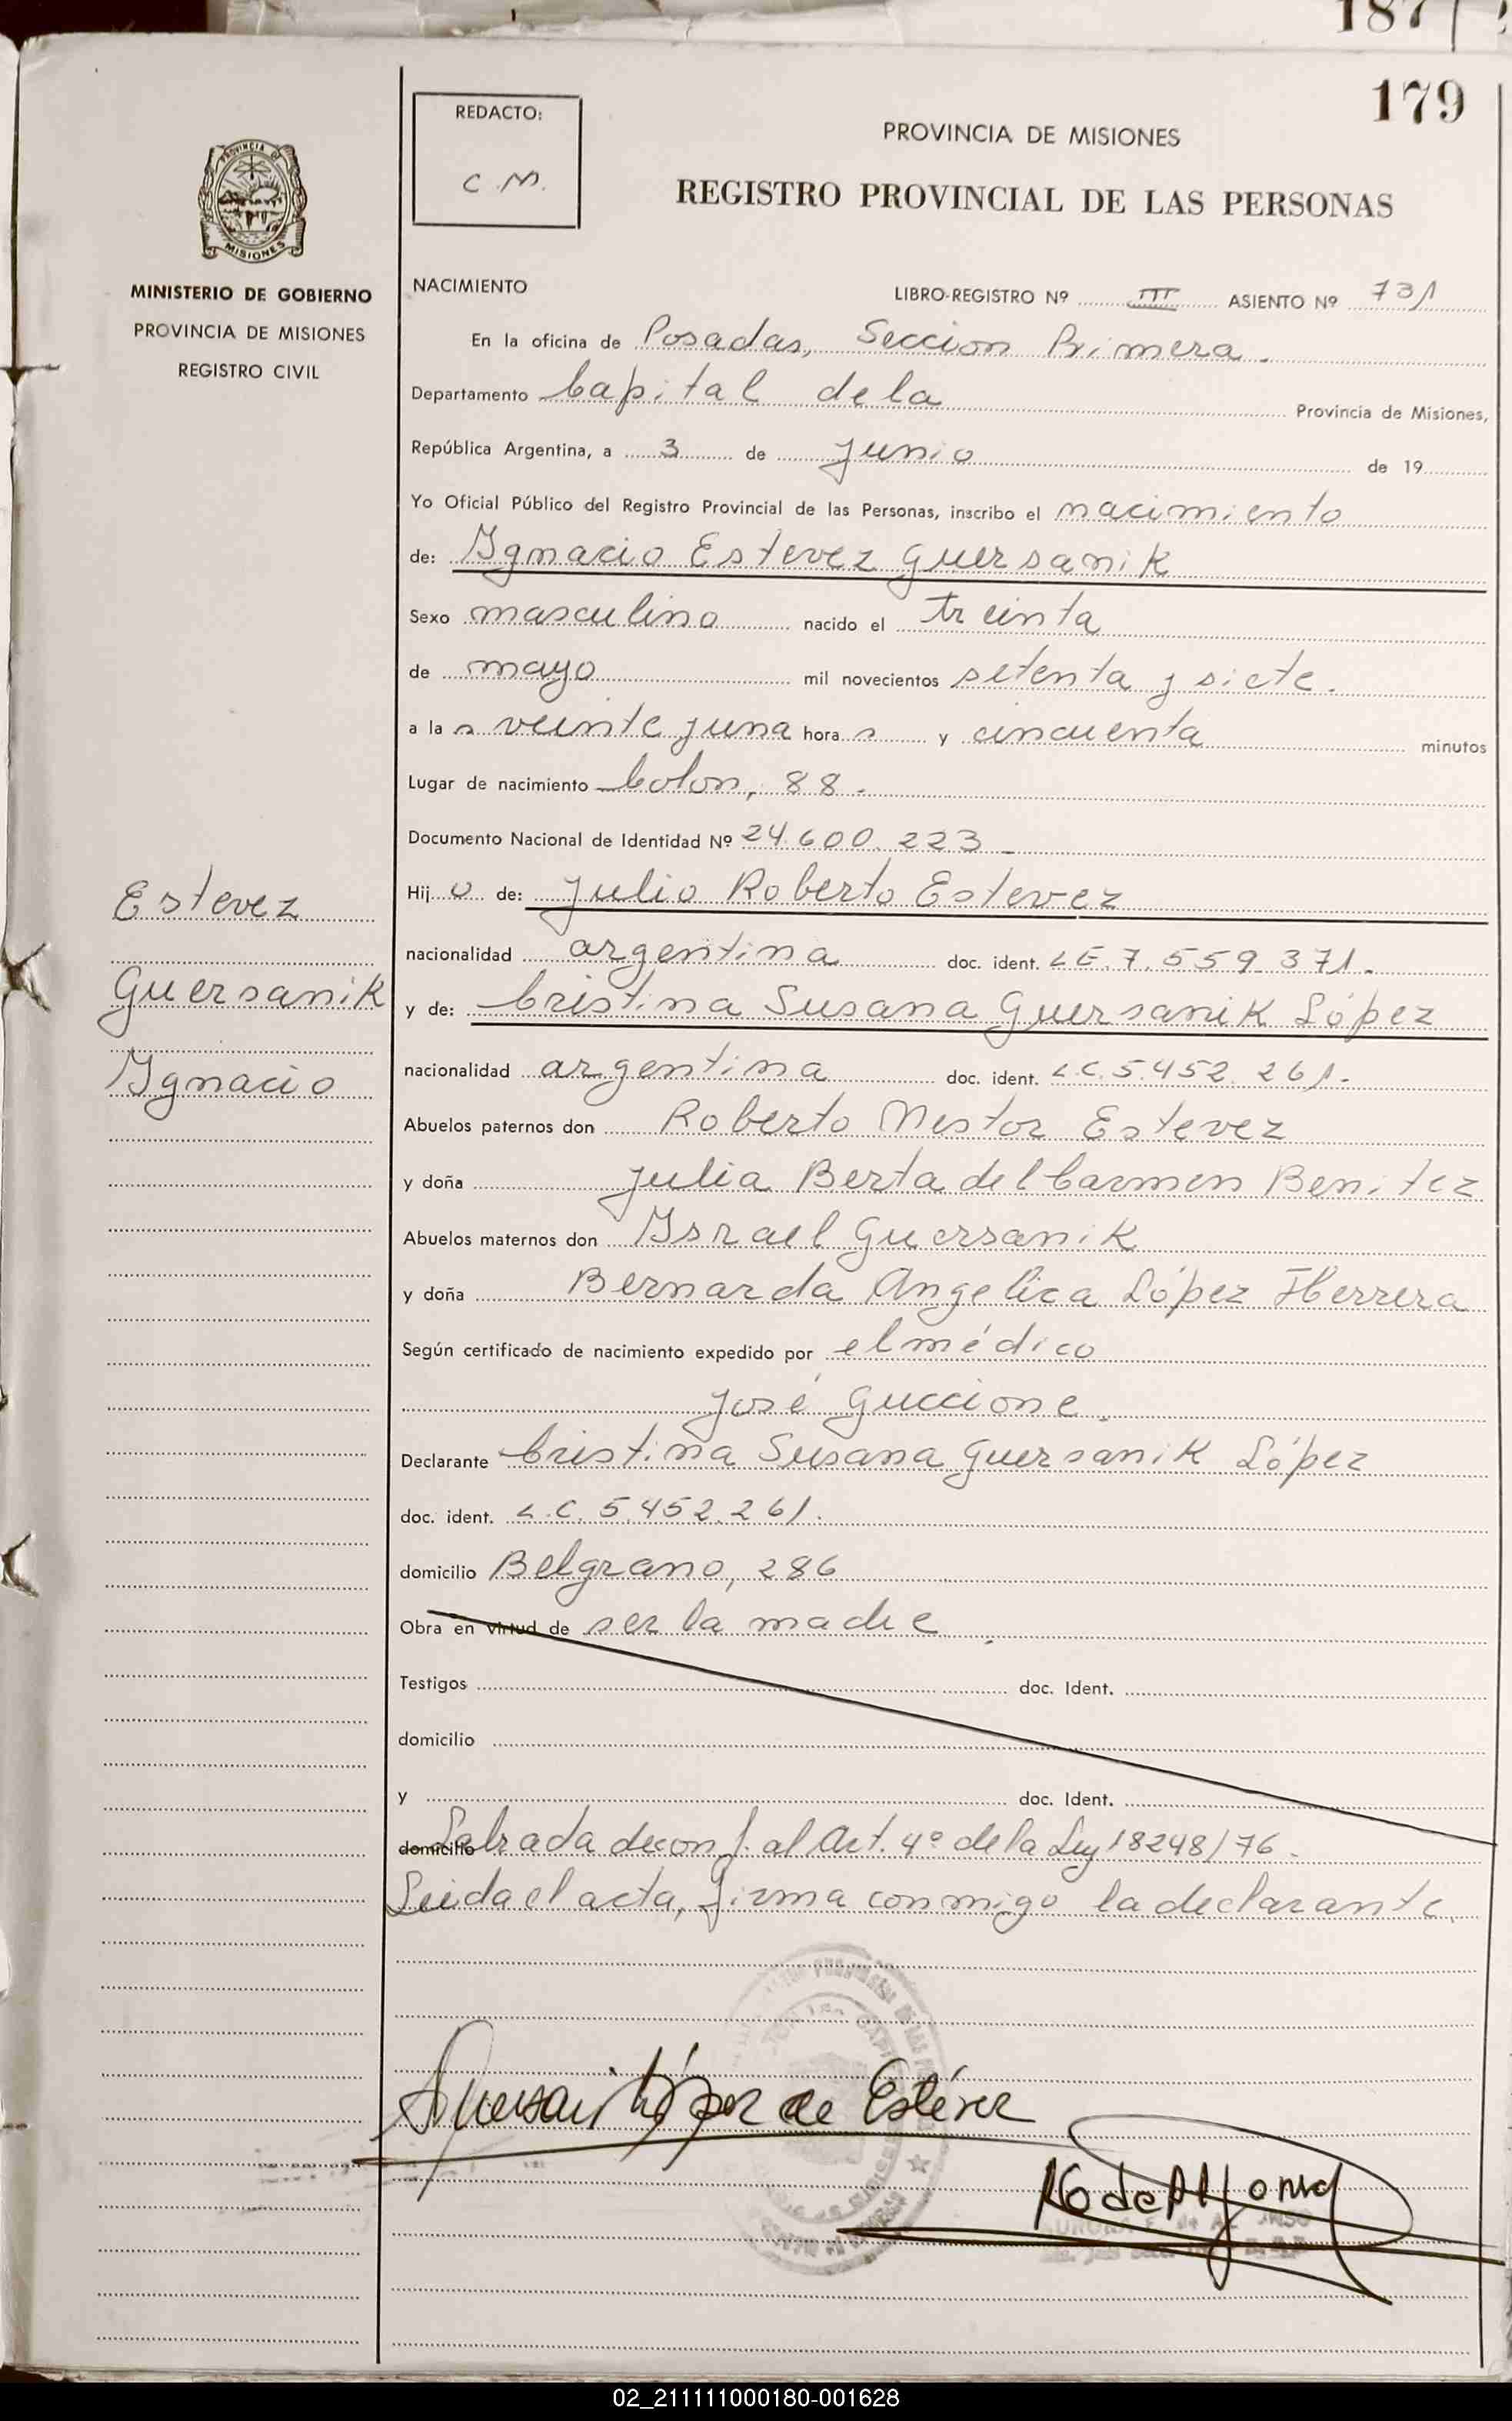 187
179
REDACTO:
C M.
PROVINCIA DE MISIONES
REGISTRO PROVINCIAL DE LAS PERSONAS
PROVINCIA DE
MISIONES
MINISTERIO DE GOBIERNO
PROVINCIA DE MISIONES
REGISTRO CIVIL
NACIMIENTO
LIBRO-REGISTRO Nº III ASIENTO Nº 731
En la oficina de Posadas, Seccion Primera.
Departamento Capital de la Provincia de Misiones,
República Argentina, a 3 de junio de 19
Yo Oficial Público del Registro Provincial de las Personas, inscribo el nacimiento
de: Ygnacio Estevez Guersanik
Sexo masculino nacido el treinta
de mayo mil novecientos setenta y siete.
a las veinte y una horas y cincuenta minutos
Lugar de nacimiento Colon, 88.
Documento Nacional de Identidad Nº 24.600.223
Hijo de: Julio Roberto Estevez
nacionalidad argentina doc. ident. LE. 7.559.371.
y de: Cristina Susana Guersanik López
nacionalidad argentina doc. ident. L.C. 5.452.261.
Abuelos paternos don Roberto Nestor Estevez
y doña Julia Berta del Carmen Benitez
Abuelos maternos don Ysrael Guersanik
y doña Bernarda Angelica López Herrera
Según certificado de nacimiento expedido por el médico
José Guccione.
Declarante Cristina Susana Guersanik López
doc. ident. L.C. 5.452.261.
domicilio Belgrano, 286
Obra en virtud de ser la madre.
Testigos doc. Ident.
domicilio
y doc. Ident.
domicilio Labrada de conf. al Art. 4º de la Ley 18248/76.
Leida el acta, firma conmigo la declarante.
Estevez
Guersanik
Ygnacio
López de Estévez
02_211111000180-001628